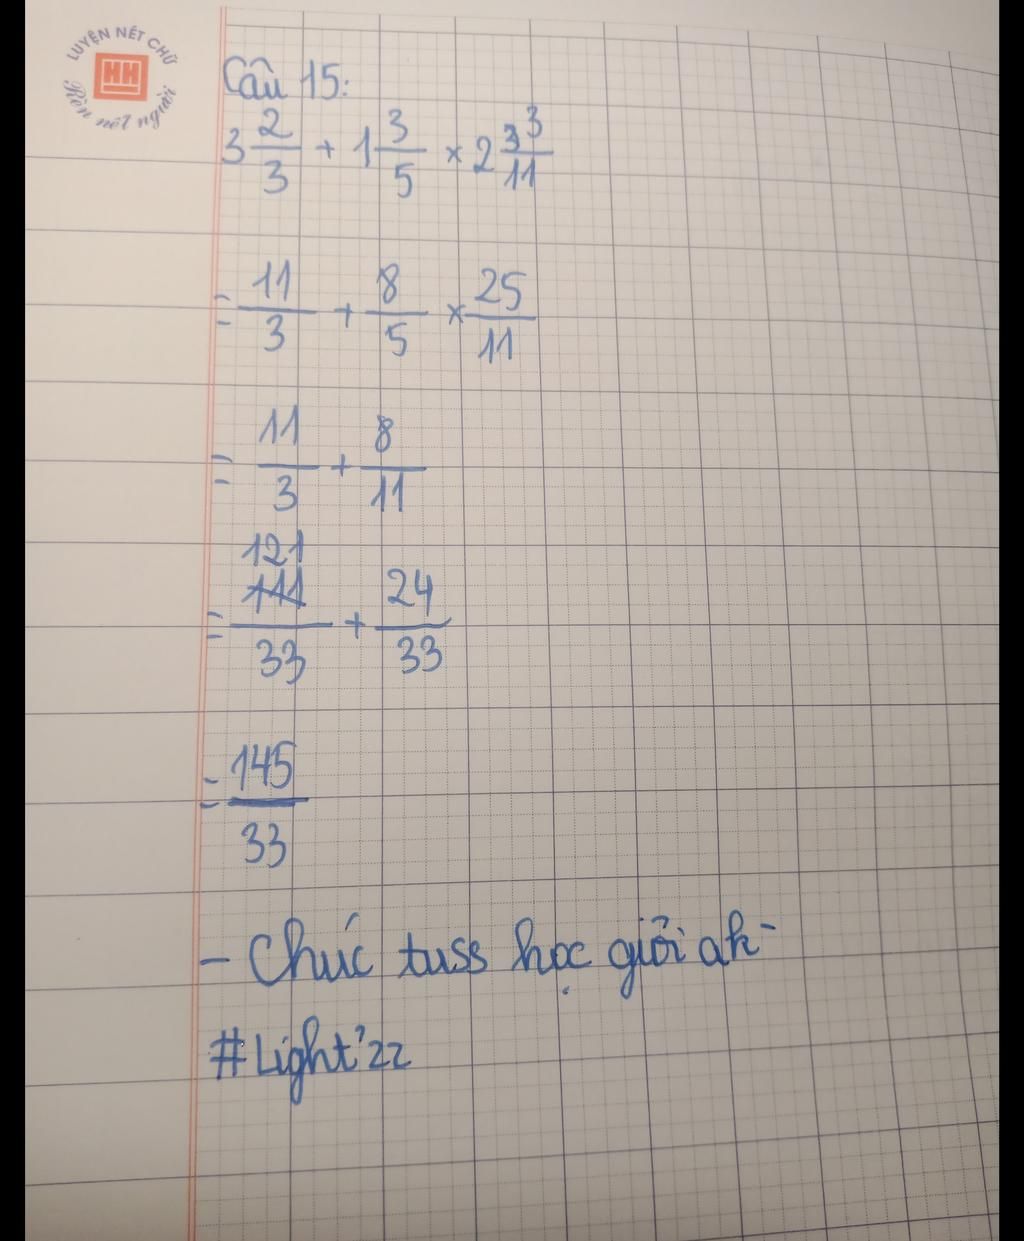 LUYỆN NÉT CHỮ
HH
Rèn nết người
Câu 15:
3 2/3 + 1 3/5 × 2 3/11
= 11/3 + 8/5 × 25/11
= 11/3 + 8/11
= 121/33 + 24/33
= 145/33
- Chúc tuss học giỏi ah -
#Light'zz